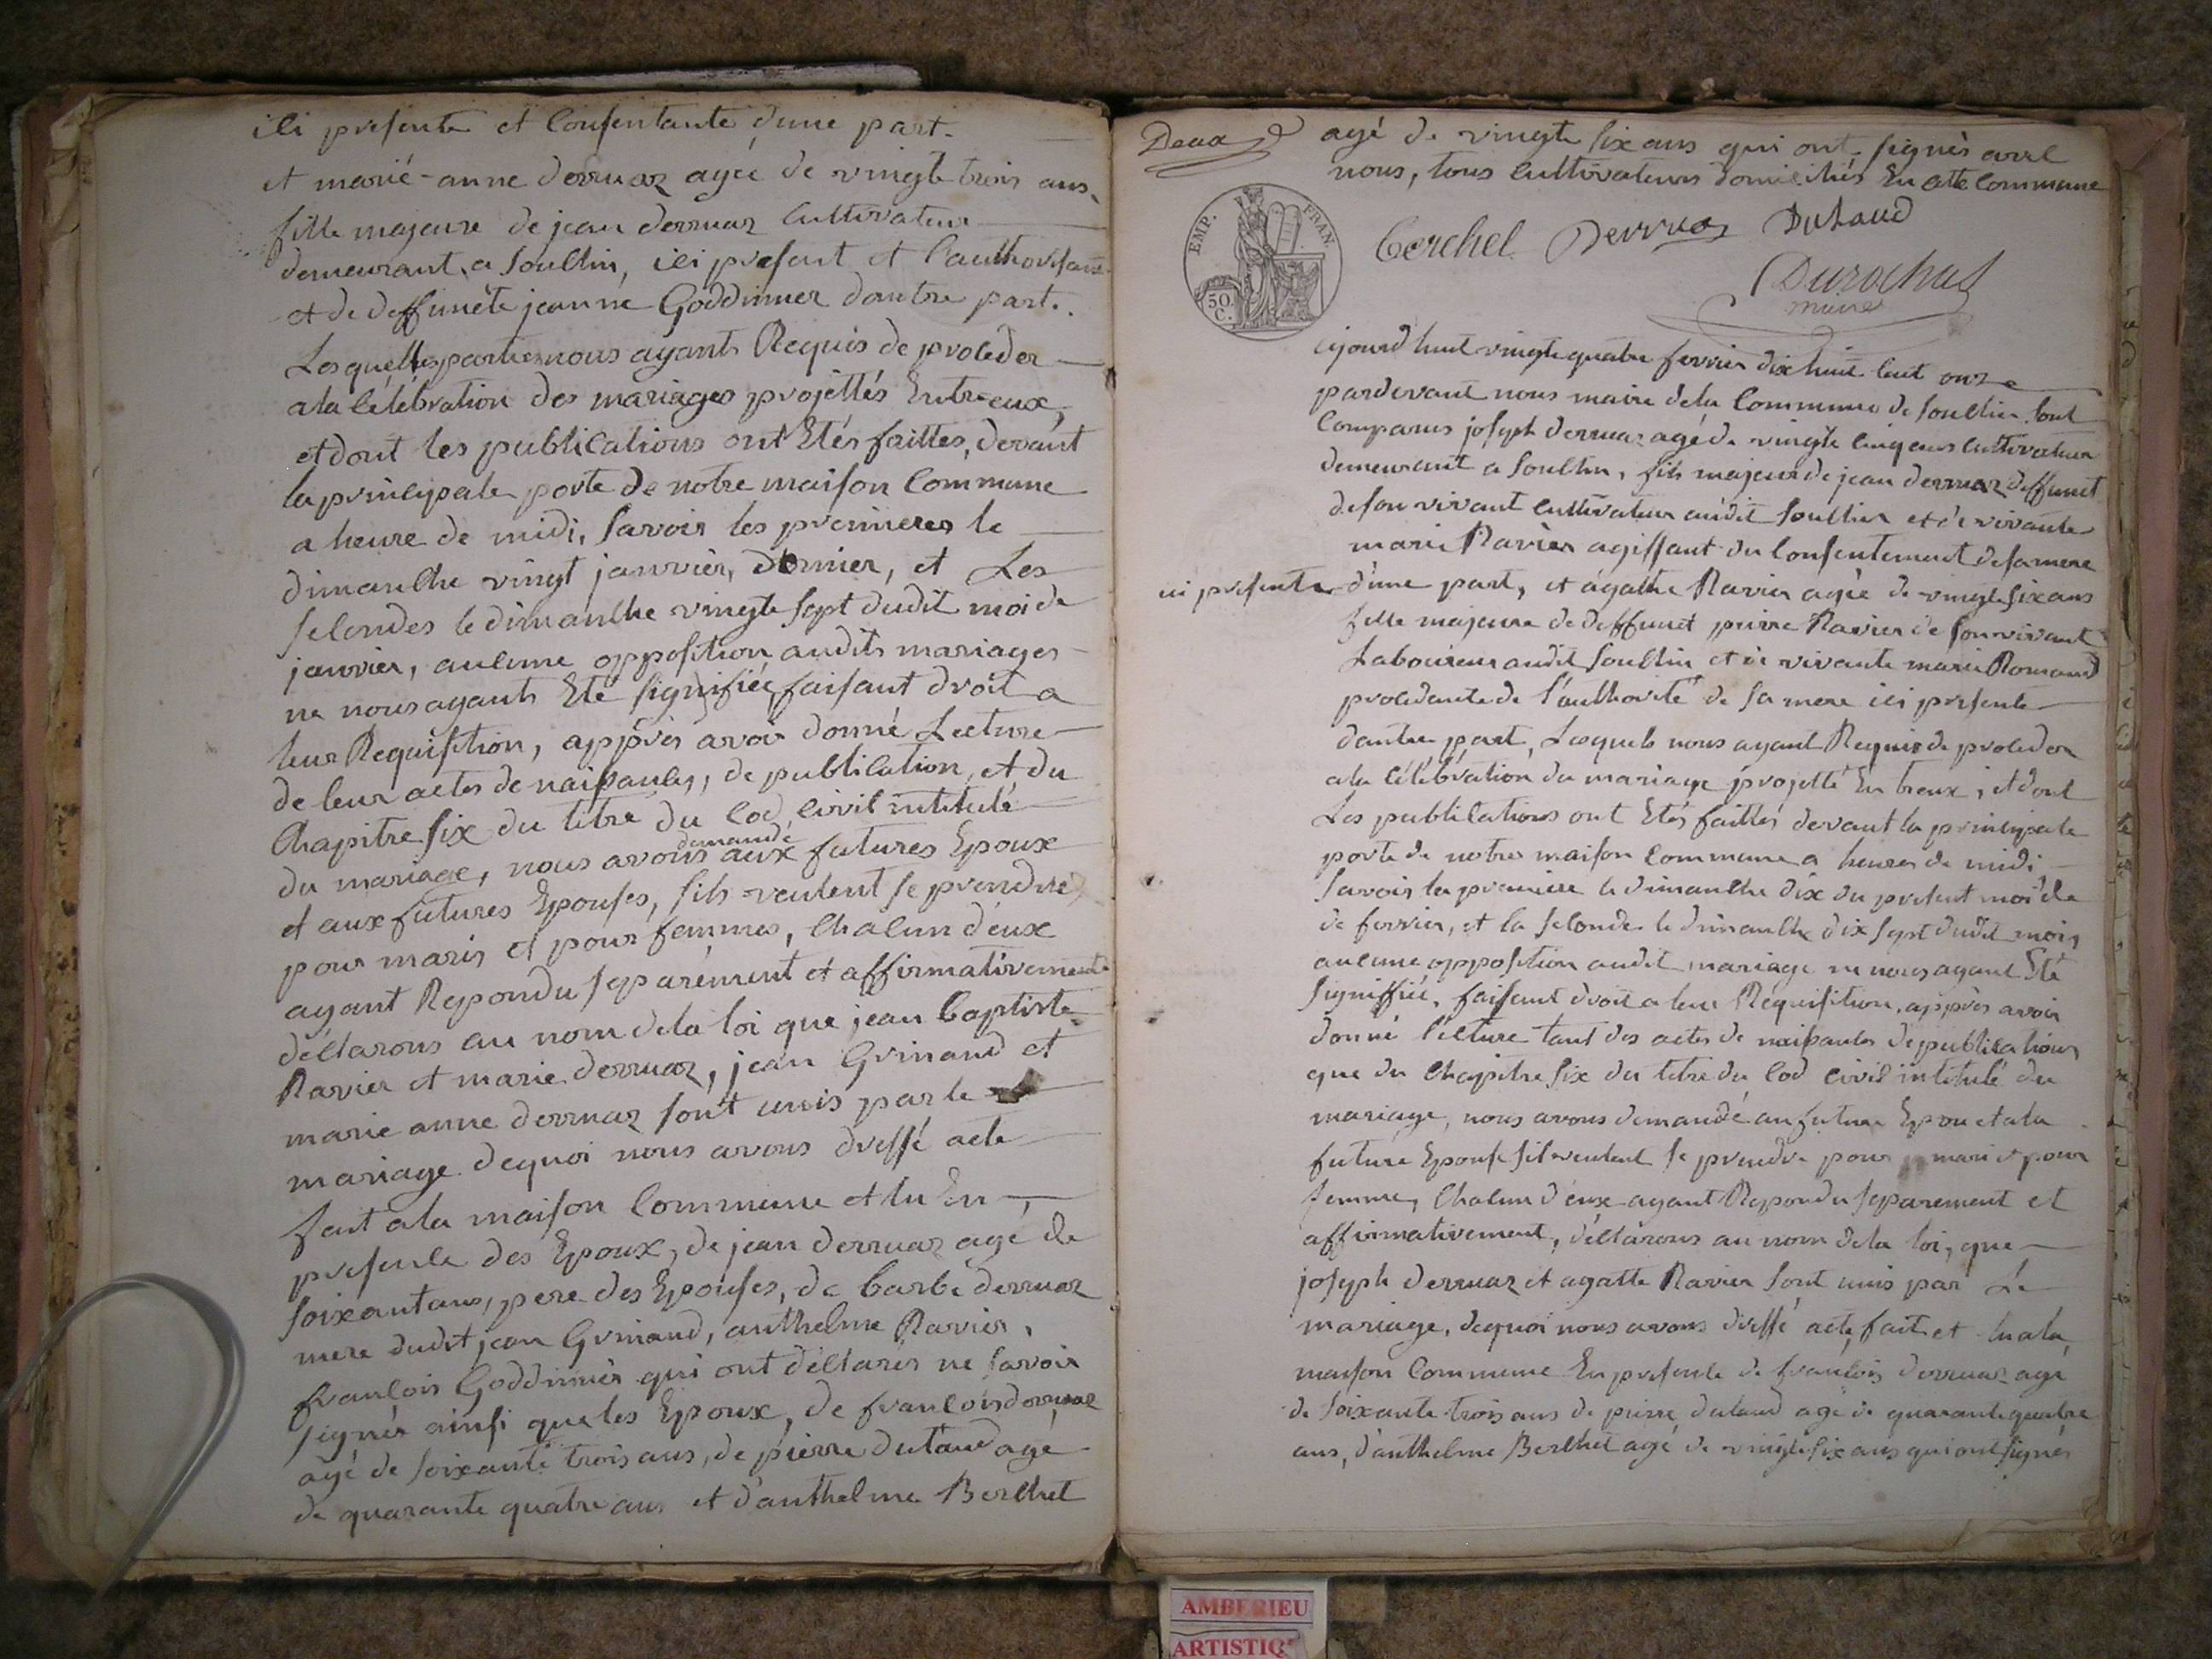 ici presente et Consentante d'une part.
et marie-anne derruaz agée de vingte trois ans,
fille majeure de jean derruaz Cultivateur
demeurant, a Souclin, ici present et l'authorisant
et de deffuncte jeanne Goddimier dautre part.
Lesquelles parties nous ayants Requis de proceder
a la célébration des mariages projettés Entr-eux,
et dont les publications ont Etés faittes, devant
la principale porte de notre maison Commune
a heure de midi, Savoir les premieres le
dimanche vingt janvier, dernier, et Les
secondes le dimanche vingte sept dudit moi de
janvier, aucune opposition audits mariages
ne nous ayants Eté signifiée, faisant droit a
leur Requisition, apprès avoir donné Lecture
de leur actes de naissances, de publication, et du
Chapitre six du titre du Cod civil intitulé
du mariage, nous avons demandé aux futures Epoux
et aux futures Epouses, sils veulent se prendre
pour maris et pour femmes, chacun d'eux
ayant Repondu separément et affirmativement
déclarons au nom de la loi que jean baptiste
Ravier et marie derruaz, jean Grinand et
marie anne derruaz sont unis par le
mariage dequoi nous avons dressé acte
fait a la maison Commune et lu En
presence des Epoux, de jean derruaz agé de
soixant ans, pere des Epouses, de barbe derruaz
mere dudit jean Grinand, anthelme Ravier,
françois Goddimier qui ont déclarés ne savoir
signer ainsi que les Epoux, de francois derruaz
agé de soixante trois ans, de pierre dutaud agé
de quarante quatre ans et d'anthelme Berchet
Deux
agé de vingte six ans qui ont signés avec
nous, tous cultivateurs domiciliés En cette Commune
EMP. FRAN.
50 C.
Berchel Derruaz Dutaud
Durochat
maire
cejourd'huit vingte quatre fevrier dix huit cent onze
pardevant nous maire de la Commune de Souclin sont
Comparus joseph derruaz agé de vingte cinq ans cultivateur
demeurant a Souclin, fils majeur de jean derruaz deffunct
de son vivant cultivateur audit Souclin et de vivante
marie Ravier agissant du Consentement de sa mere
ici presente d'une part, et agathe Ravier agée de vingte six ans
fille majeure de deffunct pierre Ravier de son vivant
Laboureur audit Souclin et de vivante marie Romand
procedante de l'authorité de sa mere ici presente
dautre part, Lesquels nous ayant Requis de proceder
a la célébration du mariage projetté En treux, et dont
Les publications ont Etés faittés devant la principale
porte de notre maison Commune a heure de midi
Savoir la premiere le dimanche dix du present moi de
de fevrier, et la seconde le dimanche dix sept dudit mois
aucune opposition audit mariage ne nous ayant Eté
signiffiée, faisant droit a leur Requisition, apprès avoir
donné lecture tant des actes de naissances de publications
que du Chapitre six du titre du Cod civil intitulé du
mariage, nous avons demandé au future Epou et a la
future Epouse sil veulent se prendre pour mari et pour
femme, Chacun d'eux ayant Repondu separement et
affirmativement, déclarons au nom de la loi, que
joseph derruaz et agatte Ravier sont unis par Le
mariage, dequoi nous avons dressé acte, fait et lu a la
maison Commune En presence de francois derruaz agé
de soixante trois ans de pierre dutaud agé de quarante quatre
ans, d'anthelme Berchet agé de vingte six ans qui ont signés
AMBERIEU
ARTISTIQ